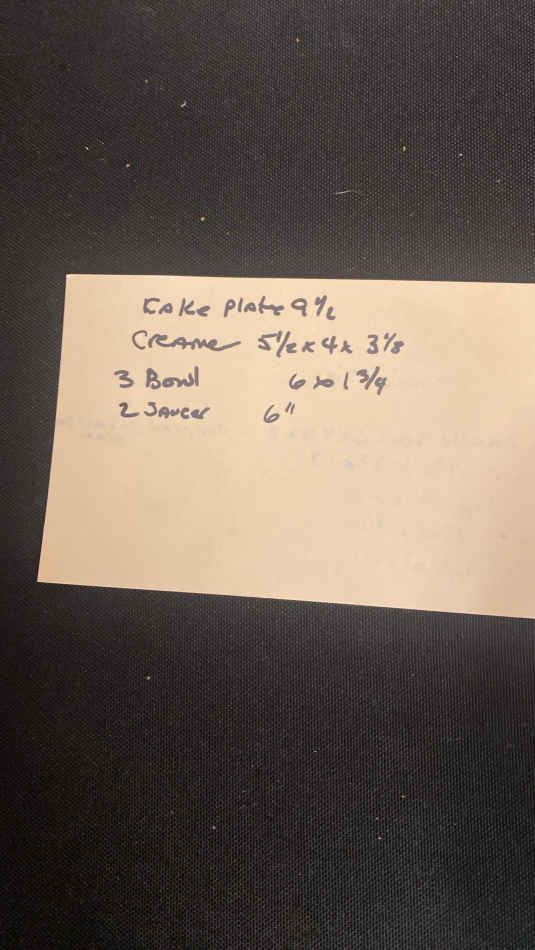 Cake Plate 9 1/2
Creamer 5 1/2 x 4 x 3 1/8
3 Bowl 6 x 1 3/4
2 Saucer 6"